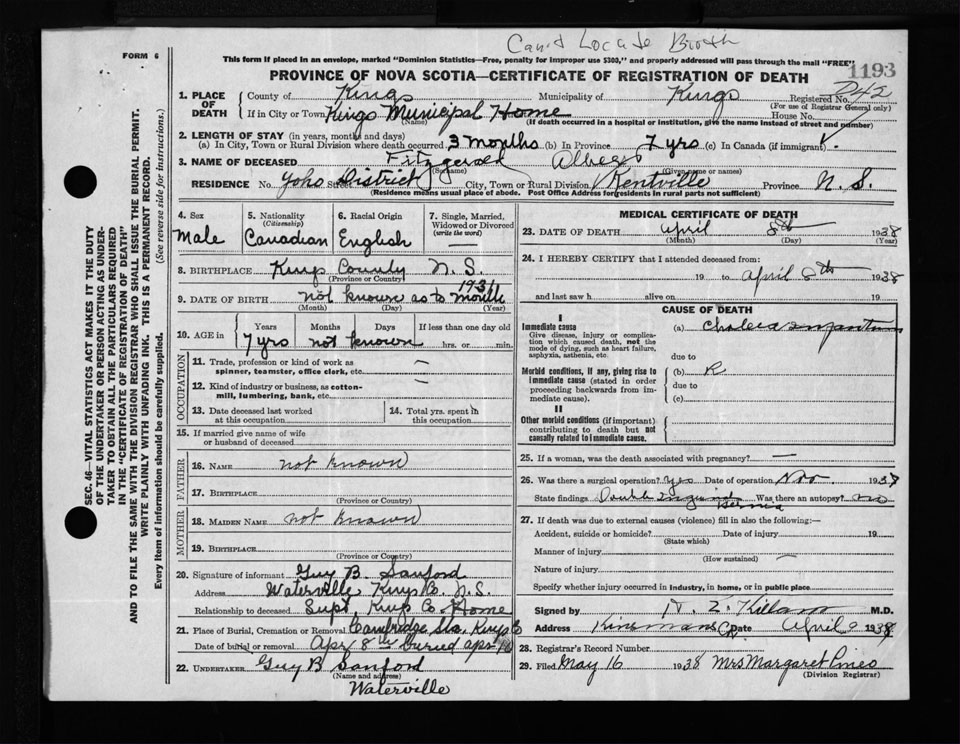 Can't Locate Birth
FORM 6
This form if placed in an envelope, marked "Dominion Statistics—Free, penalty for improper use $300," and properly addressed will pass through the mail "FREE"
1193
PROVINCE OF NOVA SCOTIA—CERTIFICATE OF REGISTRATION OF DEATH
242
1. PLACE OF DEATH
County of Kings Municipality of Kings Registered No.
(For use of Registrar General only)
If in City or Town Kings Municipal Home House No.
(Name) (If death occurred in a hospital or institution, give the name instead of street and number)
2. LENGTH OF STAY (in years, months and days)
(a) In City, Town or Rural Division where death occurred 3 months (b) In Province 7 yrs (c) In Canada (if immigrant)
3. NAME OF DECEASED Fitzgerald Albert
(Surname) (Given name or names)
RESIDENCE No. Yoho Street District City, Town or Rural Division Kentville Province N. S.
(Residence means usual place of abode. Post Office Address for residents in rural parts not sufficient)
4. Sex
Male
5. Nationality
(Citizenship)
Canadian
6. Racial Origin
English
7. Single, Married, Widowed or Divorced
(write the word)
—
8. BIRTHPLACE Kings County N. S.
(Province or Country)
9. DATE OF BIRTH not known as to month 1931
(Month) (Day) (Year)
10. AGE in
Years Months Days If less than one day old
7 yrs not known hrs. or min.
OCCUPATION
11. Trade, profession or kind of work as spinner, teamster, office clerk, etc. —
12. Kind of industry or business, as cotton-mill, lumbering, bank, etc. —
13. Date deceased last worked at this occupation
14. Total yrs. spent in this occupation
15. If married give name of wife or husband of deceased
FATHER
16. NAME not known
17. BIRTHPLACE
(Province or Country)
MOTHER
18. MAIDEN NAME not known
19. BIRTHPLACE
(Province or Country)
20. Signature of informant Guy B. Sanford
Address Waterville Kings Co. N. S.
Relationship to deceased Supt. Kings Co. Home
21. Place of Burial, Cremation or Removal Cambridge Sta. Kings
Date of burial or removal Apr 8th Buried apr
22. UNDERTAKER Guy B Sanford
(Name and address)
Waterville
MEDICAL CERTIFICATE OF DEATH
23. DATE OF DEATH April 8th 1938
(Month) (Day) (Year)
24. I HEREBY CERTIFY that I attended deceased from:
19 to April 8th 1938
and last saw h alive on 19
CAUSE OF DEATH
I
Immediate cause
Give disease, injury or complication which caused death, not the mode of dying, such as heart failure, asphyxia, asthenia, etc.
(a) Cholera Infantum
due to
Morbid conditions, if any, giving rise to immediate cause (stated in order proceeding backwards from immediate cause).
(b)
due to
(c)
II
Other morbid conditions (if important) contributing to death but not causally related to immediate cause.
25. If a woman, was the death associated with pregnancy? —
26. Was there a surgical operation? yes Date of operation Nov 1937
State findings Double Inguinal Hernia Was there an autopsy? no
27. If death was due to external causes (violence) fill in also the following:—
Accident, suicide or homicide? Date of injury 19
(State which)
Manner of injury
(How sustained)
Nature of injury
Specify whether injury occurred in industry, in home, or in public place
Signed by Killam M.D.
Address Kinsmans Date April 9 1938
28. Registrar's Record Number
29. Filed May 16 1938 Mrs Margaret Pineo
(Division Registrar)
SEC. 46—VITAL STATISTICS ACT MAKES IT THE DUTY
OF THE UNDERTAKER OR PERSON ACTING AS UNDER-
TAKER TO OBTAIN ALL THE PARTICULARS REQUIRED
IN THE "CERTIFICATE OF REGISTRATION OF DEATH"
AND TO FILE THE SAME WITH THE DIVISION REGISTRAR WHO SHALL ISSUE THE BURIAL PERMIT.
WRITE PLAINLY WITH UNFADING INK. THIS IS A PERMANENT RECORD.
Every item of information should be carefully supplied. (See reverse side for instructions.)